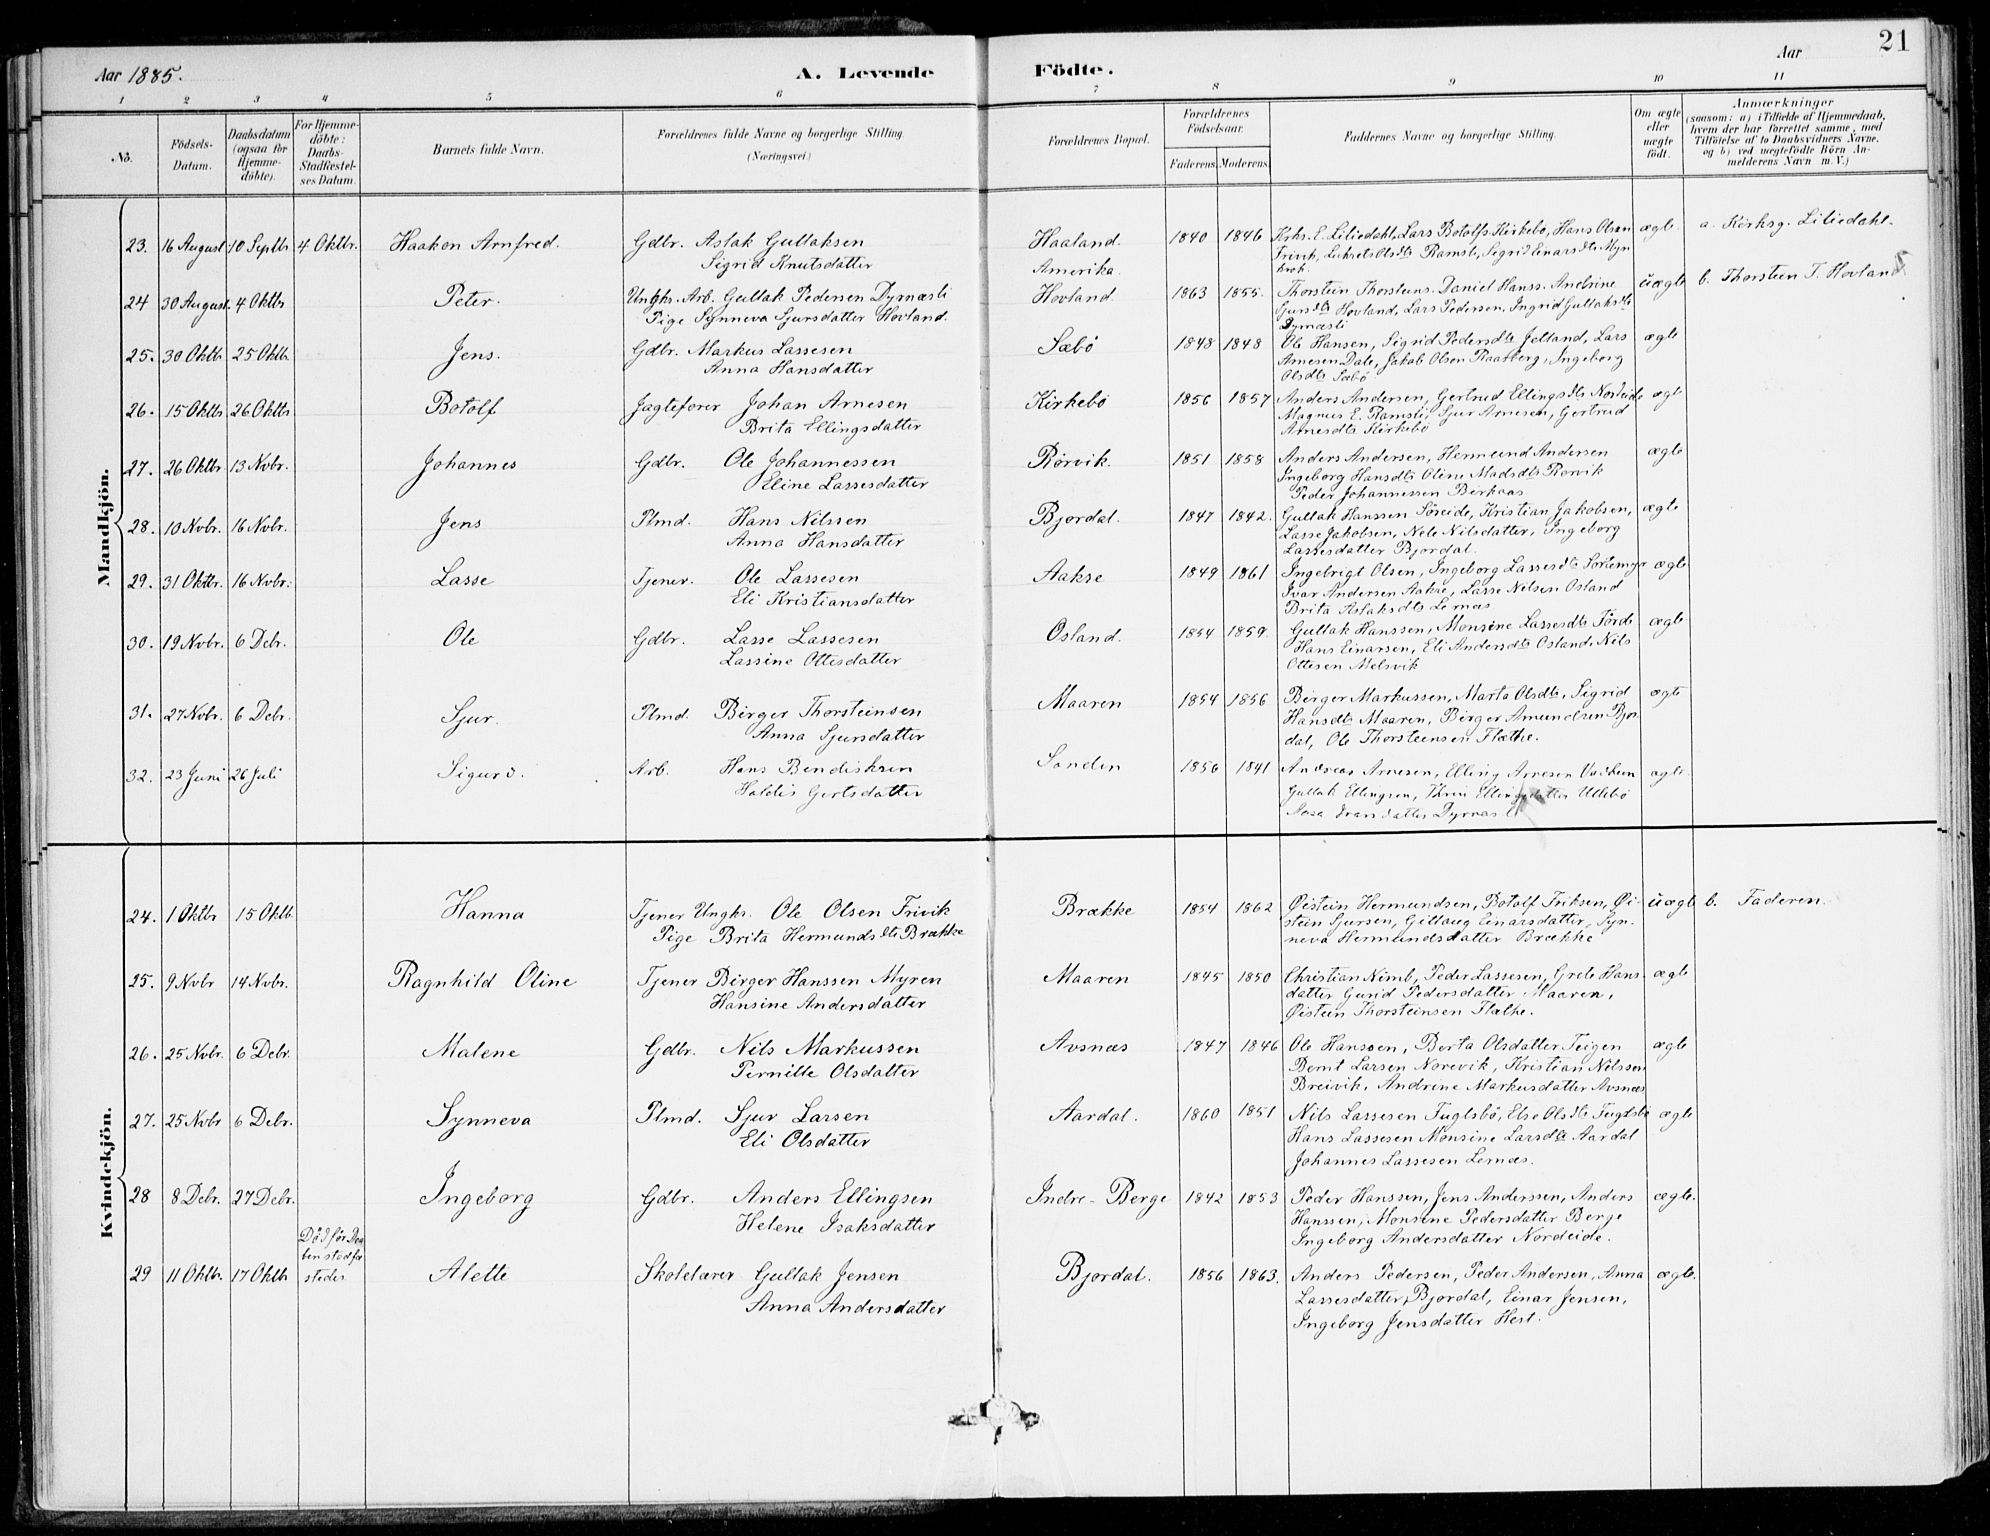 Aar 1885.
A. Levende
Födte.
Aar
21
1 2 3 4 5 6 7 8 9 10 11
No.
Födsels-Datum.
Daabsdatum (ogsaa for Hjemme-döbte).
For Hjemme-döbte: Daabs-Stadfæstel-ses Datum.
Barnets fulde Navn.
Forældrenes fulde Navne og borgerlige Stilling. (Næringsvei.)
Forældrenes Bopæl.
Forældrenes Födselsaar.
Faderens. Moderens.
Faddernes Navne og borgerlige Stilling.
Om ægte eller uægte födt.
Anmærkninger
(saasom: a) i Tilfælde af Hjemmedaab,
hvem der har forrettet samme, med
Tilföielse af to Daabsvidners Navne.
og b) ved uægtefödte Börn An-
melderens Navn m. V.)
Mandkjön.
23. 16 August 10 Septbr 4 Oktbr. Haakon Arnfred. Gdbr. Aslak Gullaksen Haaland. 1840 1846 Krks. E. Liliedahl, Lars Botolfs. Kirkebö, Hans Olsen ægte. a. Kirksg. Liliedahl.
Sigrid Knutsdatter Amerika. Trivik, Olsdtr Ramsli, Sigrid Einarsdtr
24 30 August. 4 Oktbr Peter. Ungkr. Arb. Gullak Pedersen Dymæsli Hovland. 1863 1855. Thorstein Thorsteins. Daniel Hanss. Andrine uægte b. Thorstein T. Hovland
Pige Synneva Sjursdatter Hovland. Sjursdtr Hovland, Lars Pedersen, Ingrid Gullaksdtr
Dymæsli
25. 30 Oktb. 25 Oktb. Jens. Gdbr. Markus Lassesen Sæbö 1848 1848 Ole Hansen, Sigrid Pedersdtr Jelland, Lars ægte
Anna Hansdatter Arnesen Dale, Jakob Olsen Raasberg, Ingeborg
Olsdtr Sæbö
26. 15 Oktbr 26 Oktbr Botolf Jagtefører Johan Arnesen Kirkebö 1856 1857 Anders Andersen, Gertrud Ellingsdtr Nordeide ægte
Brita Ellingsdatter Magnus E. Ramsli, Sjur Arnesen, Gertrud
Arnesdtr Kirkebö
27. 26 Oktbr. 13 Nvbr. Johannes Gdbr. Ole Johannessen Rörvik. 1851 1858 Anders Andersen, Hermund Andersen ægte
Eline Lassesdatter Ingeborg Hansdtr Oline Madsdtr Rörvik
Peder Johannessen Birkaas
28. 10 Nvbr. 16 Nvbr. Jens Plmd. Hans Nilssen Bjordal. 1847 1842. Gullak Hanssen Söreide, Kristian Jakobsen, ægte
Anna Hansdatter Lasse Jakobsen, Nele Nilsdatter, Ingeborg
Lassesdatter Bjordal.
29. 31 Oktbr. 16 Nvbr. Lasse Tjener. Ole Lassesen Aakse 1849 1861 Ingebrigt Olsen, Ingeborg Lassesdtr Sörtemyr ægte
Eli Kristiansdatter Ivar Andersen Aakre, Lasse Nilsen Osland
Brita Aslaksdtr Lernæs
30. 19 Nvbr. 6 Debr. Ole Gdbr. Lasse Lassesen Osland. 1854 1859. Gullak Hanssen, Monsine Lassesdtr Förde ægte
Lassine Ottesdatter Hans Einarsen, Eli Andersdtr Osland, Nils
Ottesen Melsvik
31. 27 Nvbr. 6 Debr. Sjur. Plmd. Birger Thorsteinsen Maaren 1854 1856 Birger Markussen, Marta Olsdtr, Sigrid ægte
Anna Sjursdatter Hansdtr Maaren, Birger Amundsen Bjor
dal, Ole Thorsteensen Flæthe.
32. 23 Juni 26 Juli Sigurd. Arb. Hans Bendiksen Sanden 1856 1841 Andreas Arnesen, Elling Arnesen Vadheim ægte.
Haldis Gertsdatter Gullak Ellingsen, Ellingsdatter Ullebö
datter
Kvindekjön.
24. 1 Oktbr 15 Oktb. Hanna Tjener Ungkr. Ole Olsen Trivik Brække 1854 1862 Øistein Hermundsen, Botolf Eriksen, Øi- uægte b. Faderen.
Pige Brita Hermundsdtr Brække stein Sjursen, Gillaug Einarsdatter, Syn-
neva Hermundsdatter Brække
25. 9 Nvbr 14 Nvbr. Ragnhild Oline Tjener Birger Hanssen Myren Maaren 1845 1850 Christian Nimb, Peder Lassesen, Grete Hans- ægte
Hansine Andersdatter datter Gurid Pedersdatter Maaren,
Øistein Thorsteinsen Flæthe.
26. 25 Nvbr. 6 Debr. Malene Gdbr. Nils Markussen Avsnæs 1847 1846 Ole Hanssen, Berta Olsdatter Teigen ægte
Pernille Olsdatter Bernt Larsen Norevik, Kristian Nilssen
Breivik, Andrine Markusdatter Avsnæs
27. 25 Nvbr 6 Debr. Synneva Plmd. Sjur Larsen Aardal. 1860 1851 Nils Lassesen Fuglsbö, Else Olsdtr Fuglsbö ægte
Eli Olsdatter Hans Lassesen Monsine Larsdtr Aardal
Johannes Lassesen Lernæs.
28 8 Debr. 27 Debr. Ingeborg Gdbr. Anders Ellingsen Indre-Berge 1842 1853 Peder Hanssen, Jens Anderssen, Anders ægte.
Helene Isaksdatter Hanssen, Monsine Pedersdatter Berge
Ingeborg Andersdatter Nordeide.
Död för Daa
ben stadfæ
stedes
29 11 Oktbr. 17 Oktbr Alette Skolelærer Gullak Jensen Bjordal. 1856 1863. Anders Pedersen, Peder Andersen, Anna ægte.
Anna Andersdatter Lassesdatter, Bjordal, Einar Jensen,
Ingeborg Jensdatter Hest.